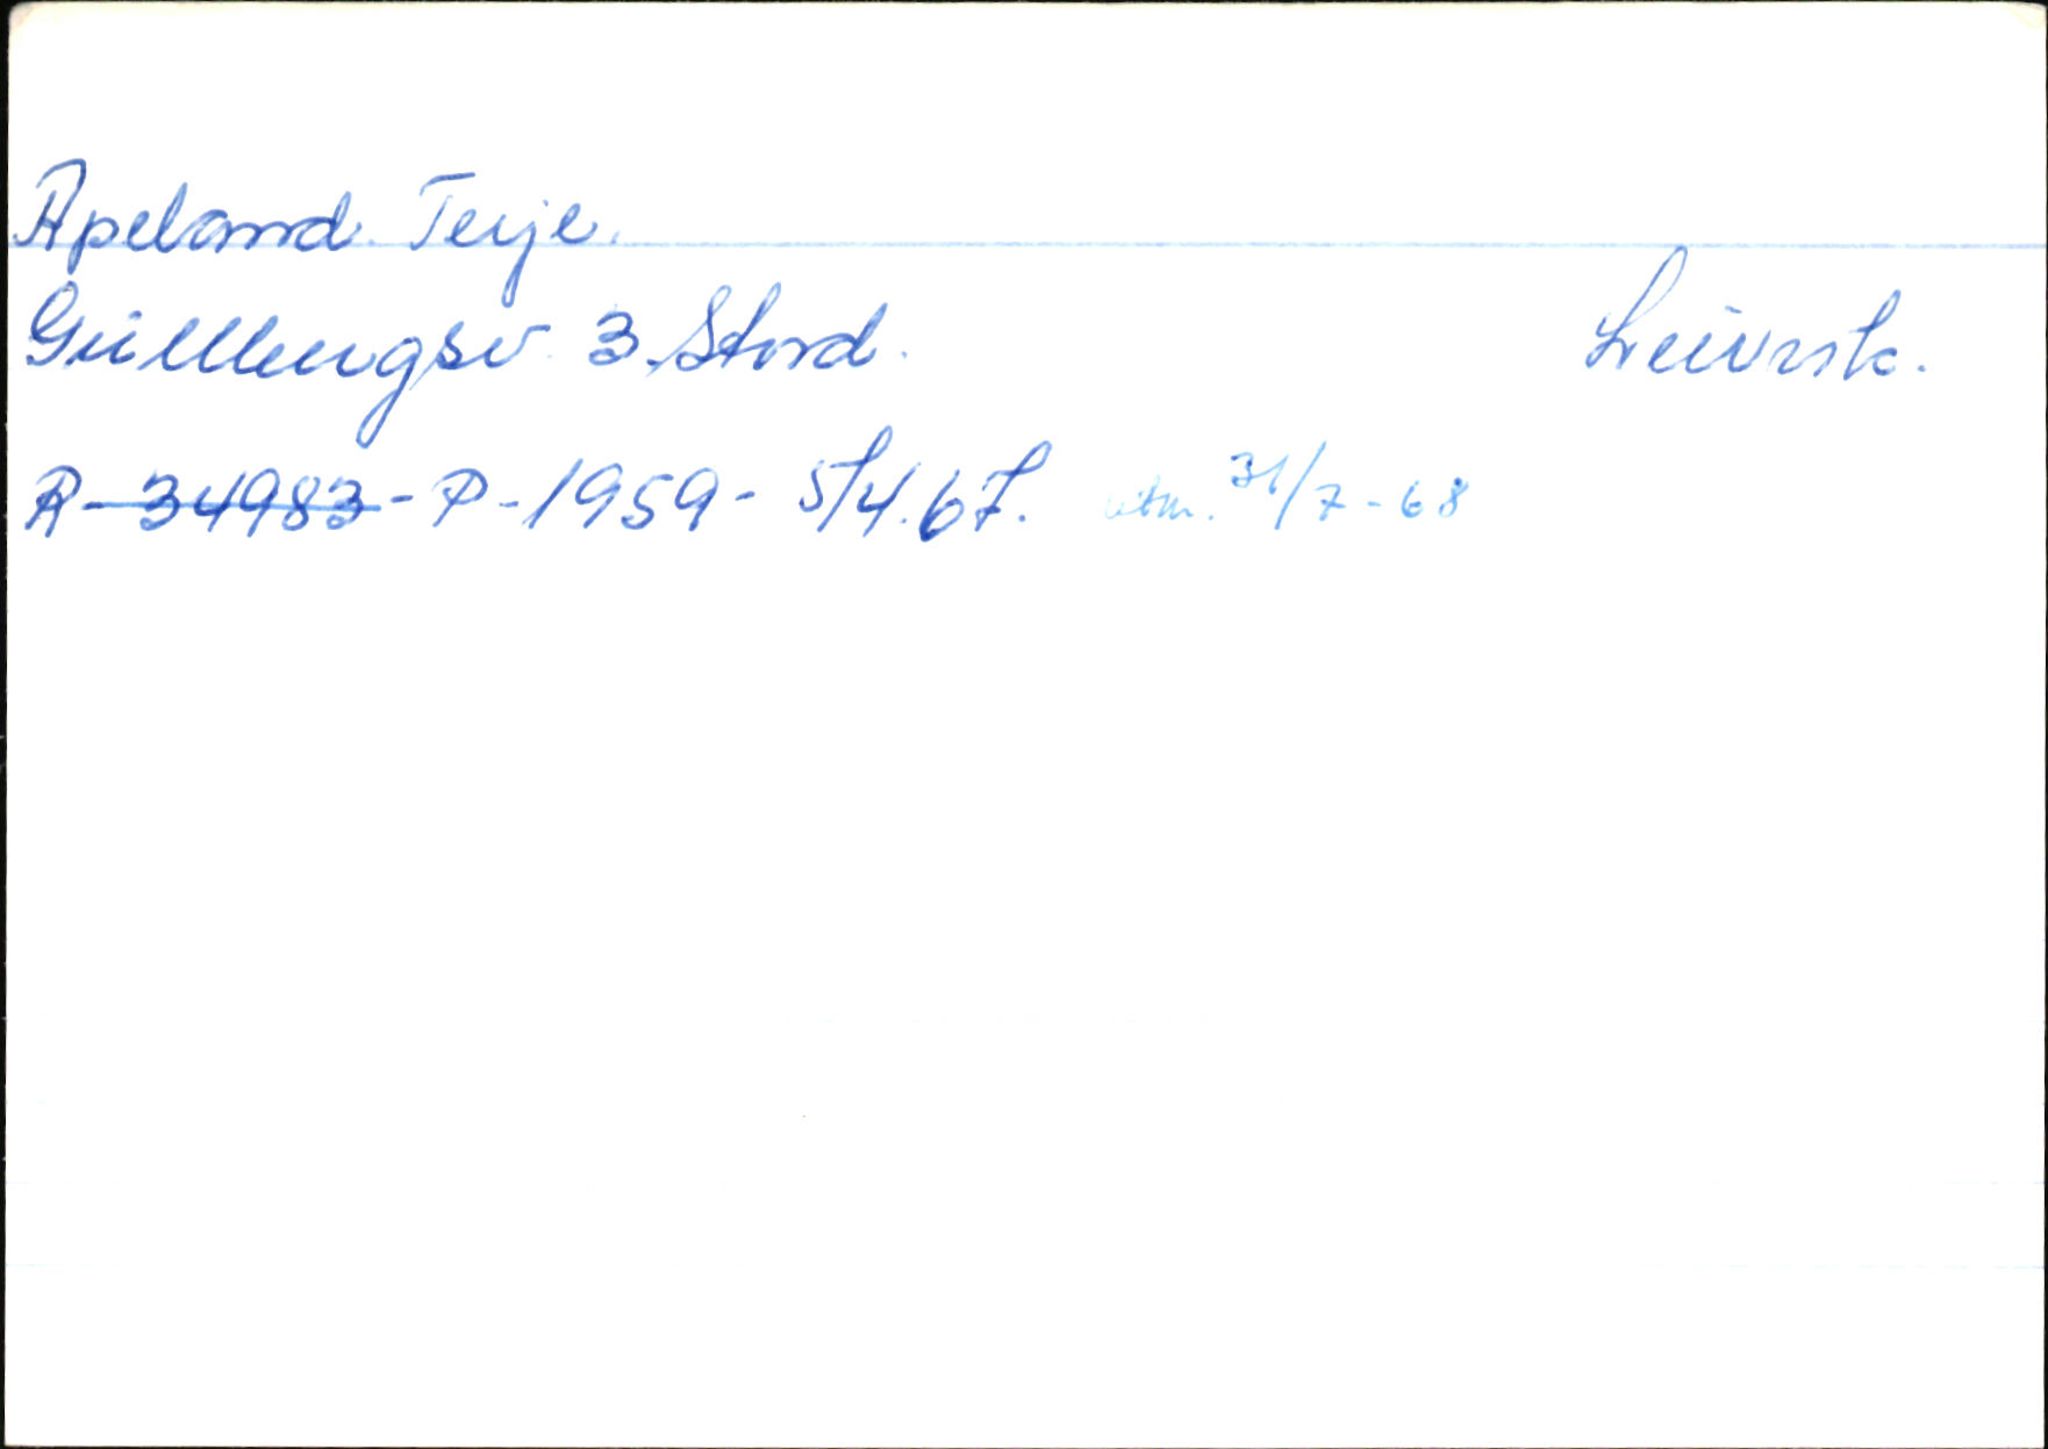 Apeland. Terje.
Gullbergsv. 3. Stord. Leirvik.
R-34983-P-1959- 5/4.67. utm. 31/7-68